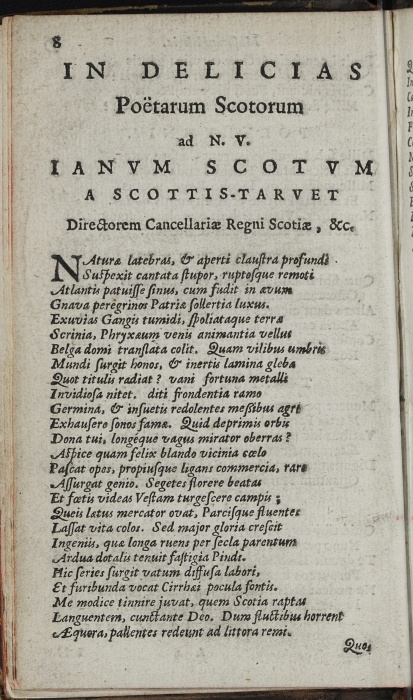 8
IN DELICIAS
Poëtarum Scotorum
ad N. V.
IANVM SCOTVM
A SCOTTIS-TARVET
Directorem Cancellariæ Regni Scotiæ, &c.
NAturæ latebras, & aperti claustra profundi
Suspexit cantata stupor, ruptosque remoti
Atlantis patuisse sinus, cum fudit in ævum
Gnava peregrinos Patriæ sollertia luxus.
Exuvias Gangis tumidi, spoliataque terræ
Scrinia, Phryxæum venis animantia vellus
Belga domi translata colit. Quam vilibus umbris
Mundi surgit honos, & inertis lamina glebæ
Quot titulis radiat? vani fortuna metalli
Invidiosa nitet. diti frondentia ramo
Germina, & insuetis redolentes messibus agri
Exhausere sonos famæ. Quid deprimis orbis
Dona tui, longéque vagus mirator oberras?
Aspice quam felix blando vicinia cœlo
Pascat opes, propiusque ligans commercia, raro
Assurgat genio. Segetes florere beatas
Et fœtis videas Vestam turgescere campis;
Queis lætus mercator ovat, Parcisque fluentes
Lassat vita colos. Sed major gloria crescit
Ingeniis, quæ longa ruens per secla parentum
Ardua dotalis tenuit fastigia Pindi.
Hic series surgit vatum diffusa labori,
Et furibunda vocat Cirrhæi pocula fontis.
Me modice tinnire juvat, quem Scotia raptat
Languentem, cunctante Deo. Dum fluctibus horrent
Æquora, pallentes redeunt ad littora remi.
Quos